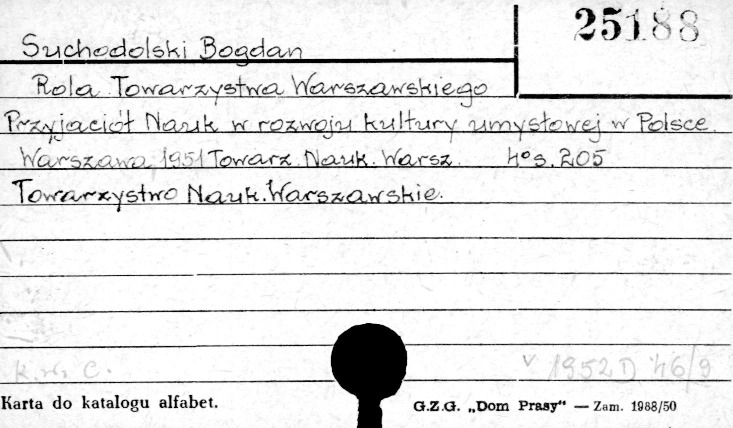 25188
Suchodolski Bogdan
Rola Towarzystwa Warszawskiego
Przyjaciół Nauk w rozwoju kultury umysłowej w Polsce.
Warszawa, 1951 Towarz. Nauk. Warsz. 4° s. 205
Towarzystwo Nauk. Warszawskie.
v 1952 D 46/9
Karta do katalogu alfabet.
G.Z.G. „Dom Prasy“ — Zam. 1988/50